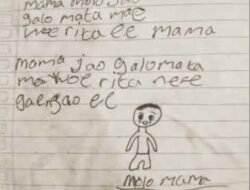 mama molo jao
galo mata mae
woe rita ee mama
mama jao galo mata
ma woe rita nefe
gaenzao ee
molo mama